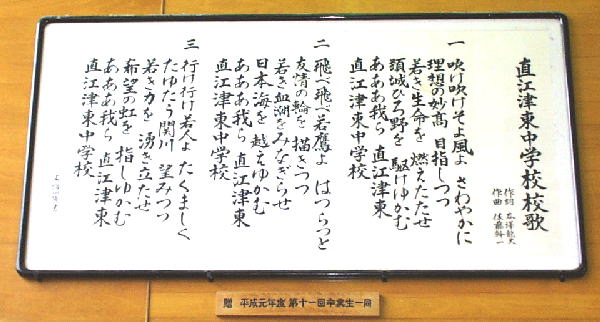 直江津東中学校校歌
作詞
作曲 佐藤
一 吹け吹けそよ風よ さわやかに
理想の妙高 目指しつつ
若き生命を 燃えたたせ
頸城ひろ野を 駆けゆかむ
あああ我ら 直江津東
直江津東中学校
二 飛べ飛べ若鷹よ はつらつと
友情の輪を 描きつつ
若き血潮を みなぎらせ
日本海を 越えゆかむ
あああ我ら 直江津東
直江津東中学校
三 行け行け若人よ たくましく
たゆたう関川 望みつつ
若き力を 湧き立たせ
希望の虹を 指しゆかむ
あああ我ら 直江津東
直江津東中学校
贈 平成元年度 第十一回卒業生一同